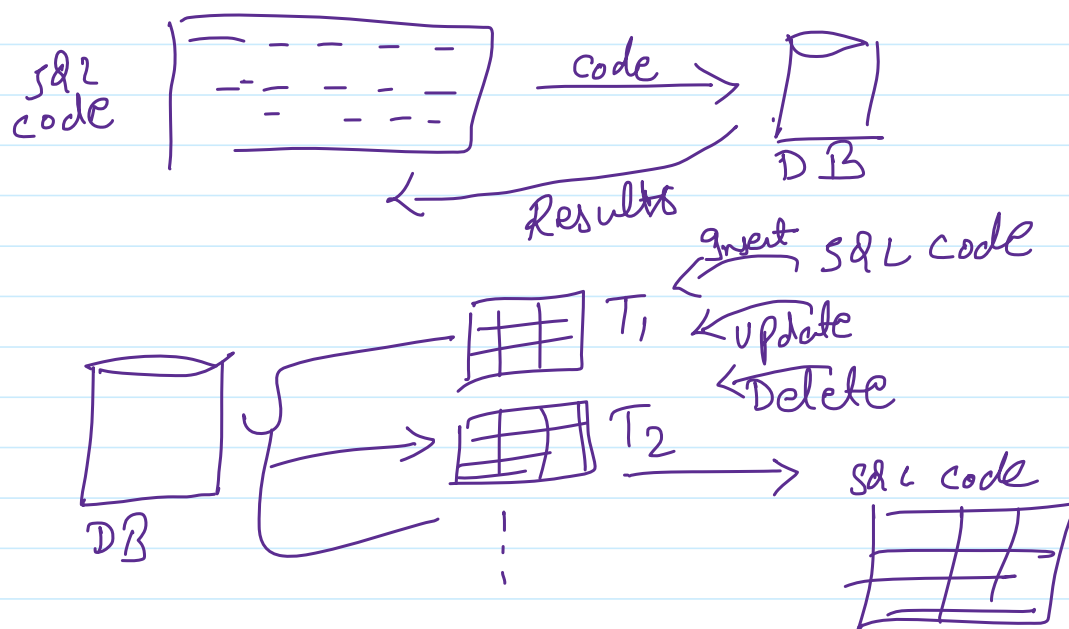 SQL
code
code
DB
Results
Insert SQL code
T1
update
Delete
T2
SQL code
DB